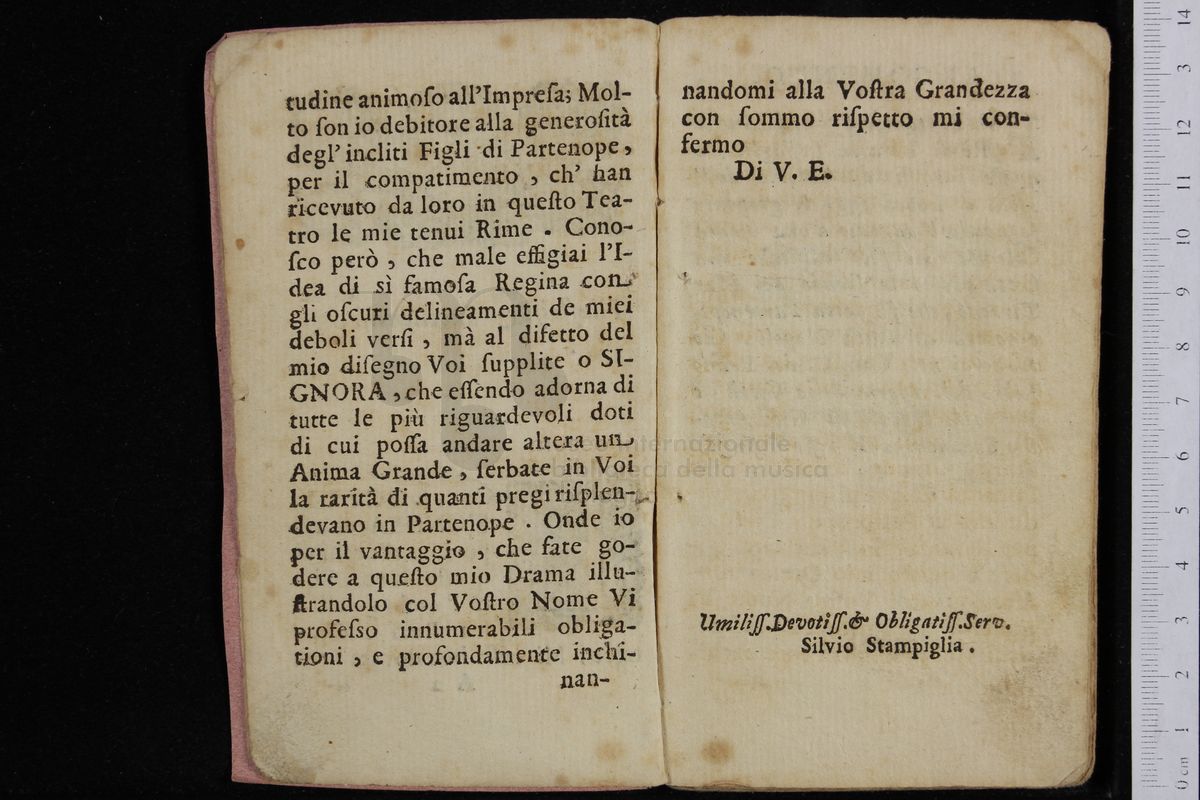 tudine animoſo all'Impreſa; Mol-
to ſon io debitore alla generoſità
degl' incliti Figli di Partenope,
per il compatimento , ch' han
ricevuto da loro in queſto Tea-
tro le mie tenui Rime . Cono-
ſco però , che male effigiai l'I-
dea di sì famoſa Regina con
gli oſcuri delineamenti de miei
deboli verſi , mà al difetto del
mio diſegno Voi ſupplite o SI-
GNORA , che eſſendo adorna di
tutte le più riguardevoli doti
di cui poſſa andare altera un
Anima Grande , ſerbate in Voi
la rarità di quanti pregi riſplen-
devano in Partenope . Onde io
per il vantaggio , che fate go-
dere a queſto mio Drama illu-
ſtrandolo col Voſtro Nome Vi
profeſso innumerabili obliga-
tioni , e profondamente inchi-
nan-
nandomi alla Voſtra Grandezza
con ſommo riſpetto mi con-
fermo
Di V. E.
Umiliſſ.Devotiſſ.& Obligatiſſ.Serv.
Silvio Stampiglia .
internazionale
della musica
0 cm 1 2 3 4 5 6 7 8 9 10 11 12 3 14